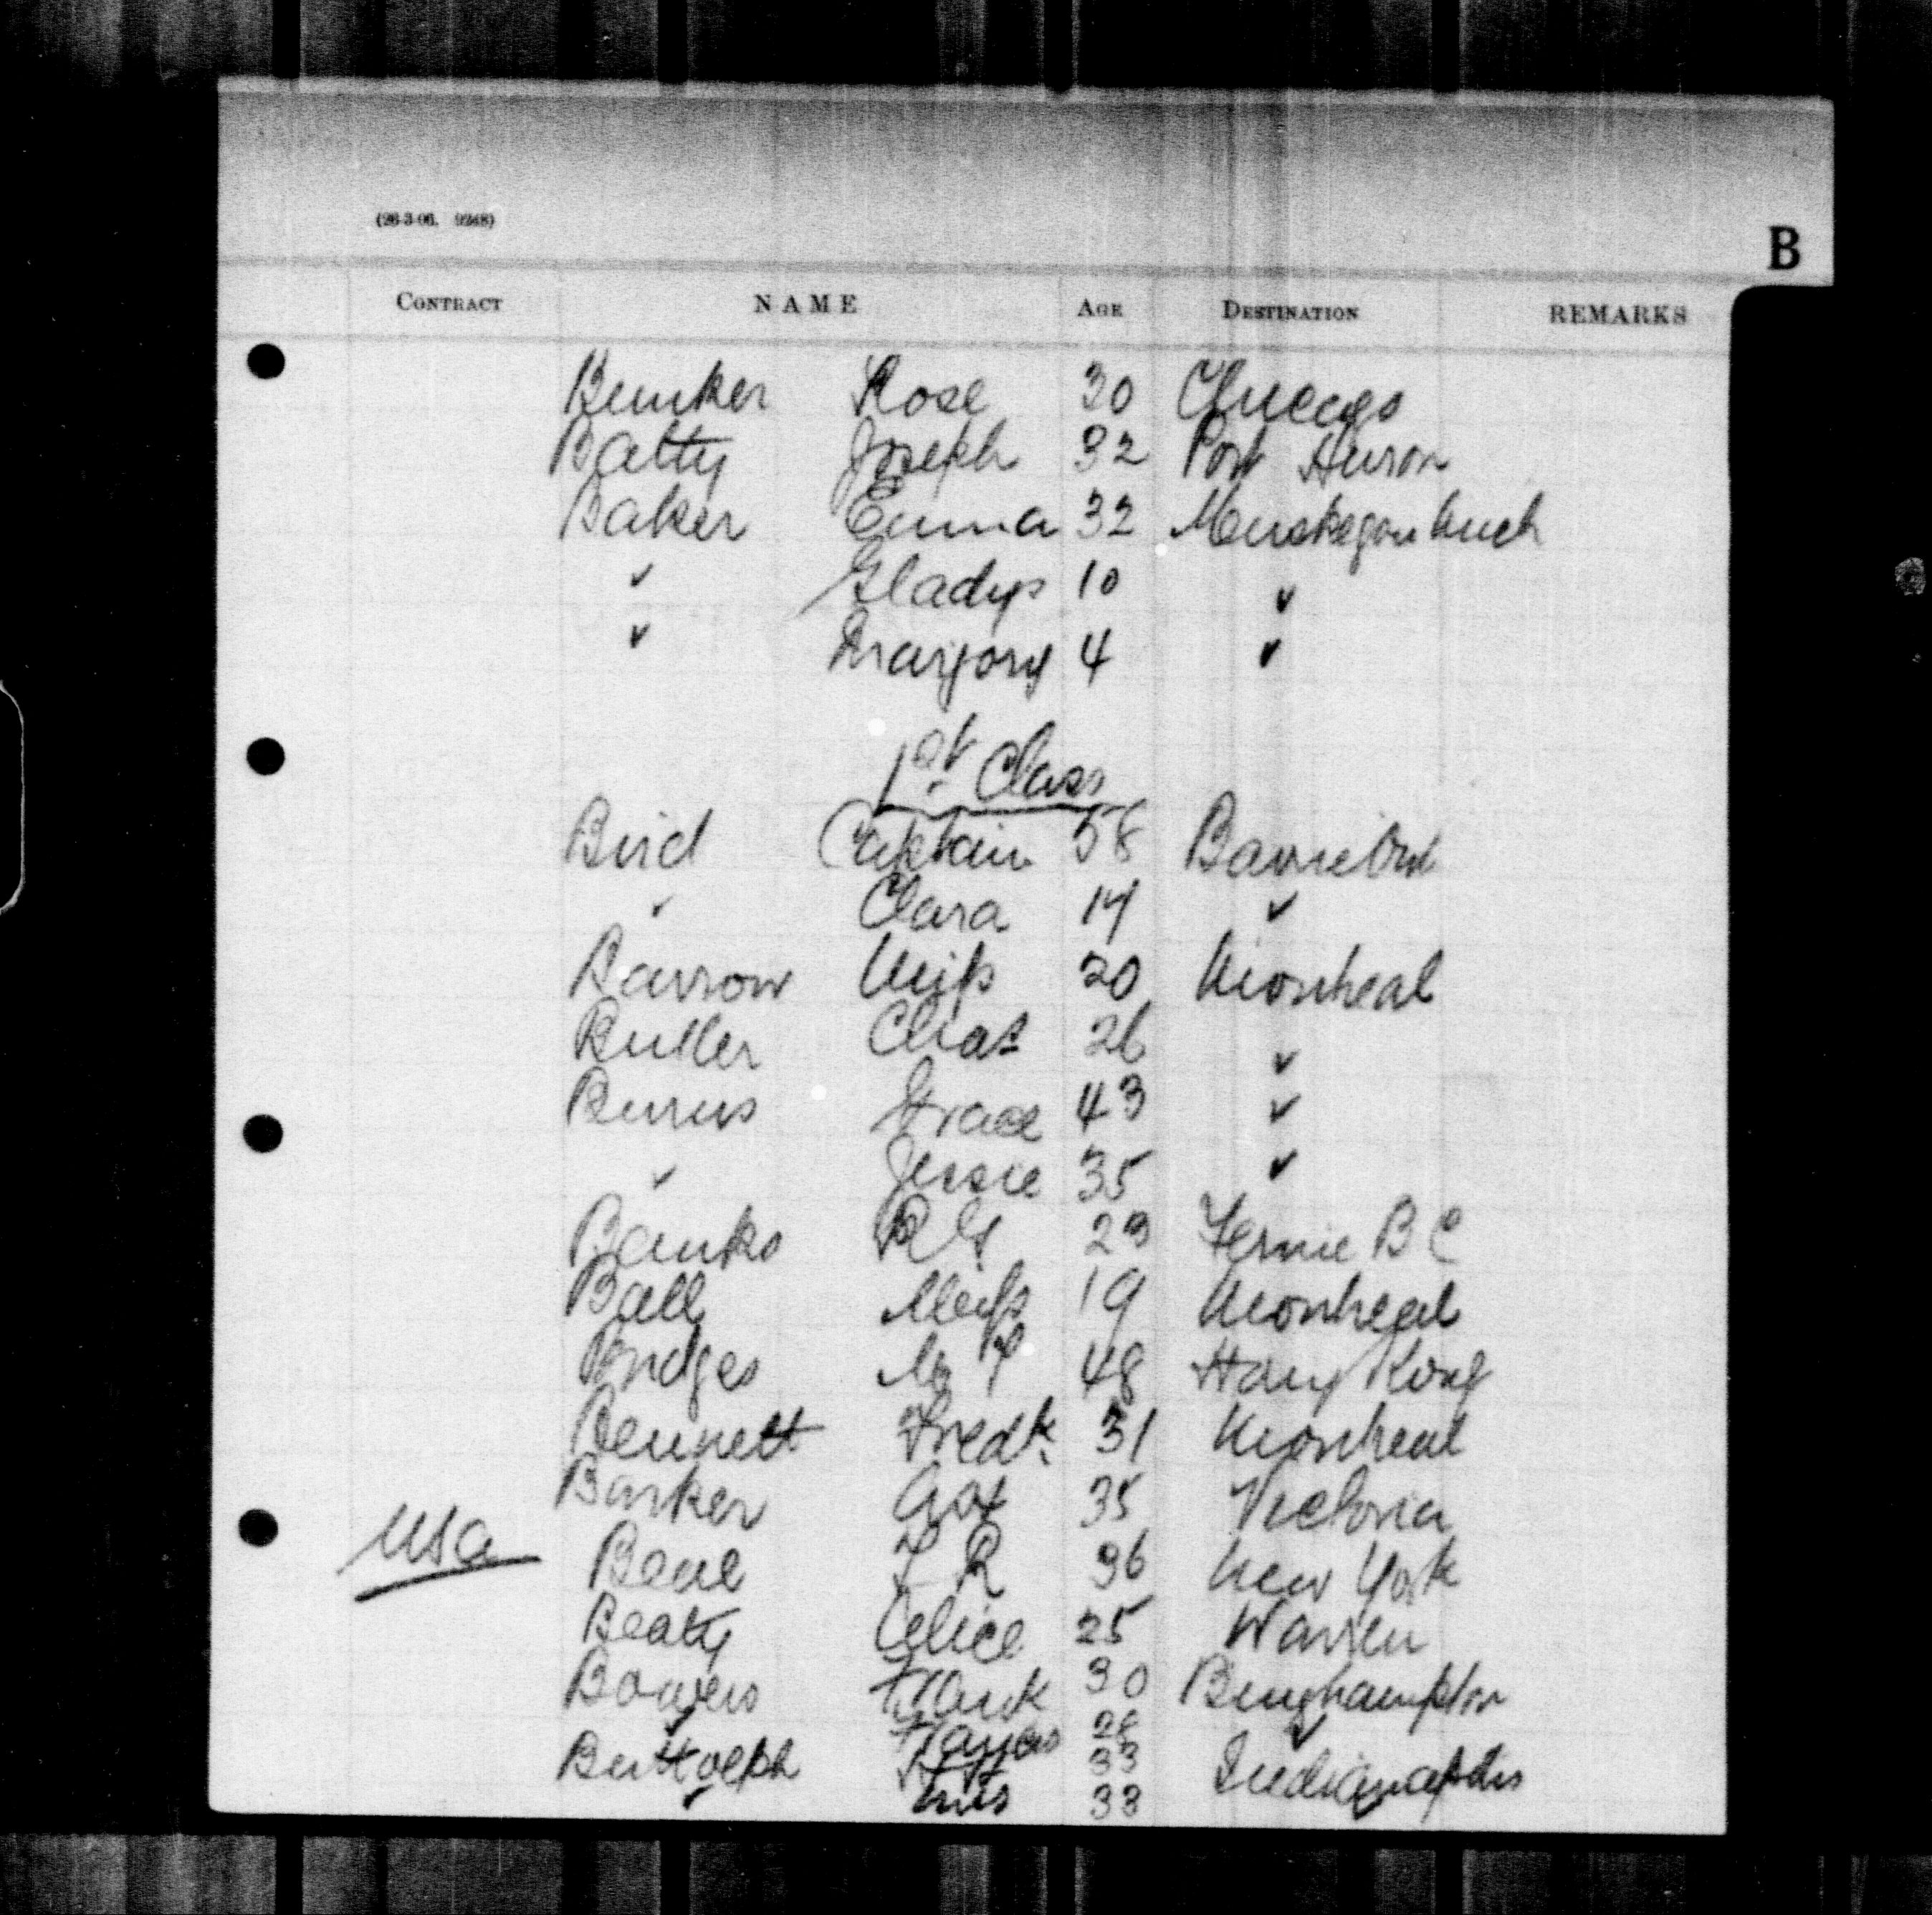 (26-3-06. 9248)
B
CONTRACT NAME AGE DESTINATION REMARKS
Bunker Rose 30 Chicago
Batty Joseph 32 Port Huron
Baker Emma 32 Muskegon Mich
" Gladys 10 "
" Marjory 4 "
1st Class
Bird Captain 58 Barrie Ont
" Clara 14 "
Barrow Miss 20 Montreal
Butler Chas 26 "
Burns Grace 43 "
" Jessie 35 "
Banks R G 29 Fernie B C
Ball Miss 19 Montreal
Bridges Mr 48 Hong Kong
Bennett Fredk. 31 Montreal
Barker 35 Victoria
USA Beal F R 36 New York
Beaty Alice 25 Warren
Bowers Frank 30 Binghampton
" 28 "
Buttolph 33 Indianapolis
" Mrs 33